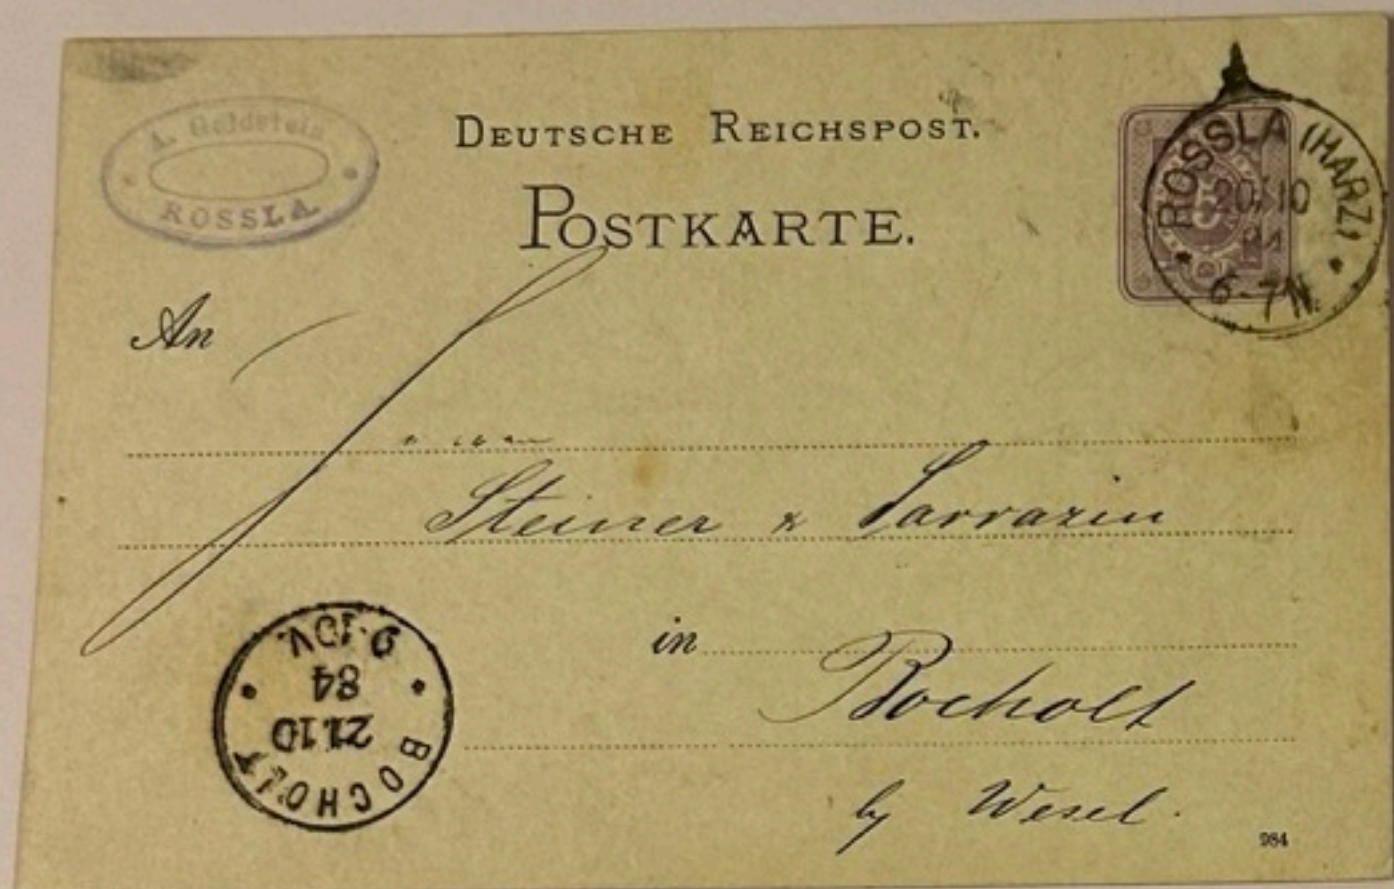 A. Goldstein
ROSSLA
DEUTSCHE REICHSPOST.
POSTKARTE.
ROSSLA (HARZ)
20/10
84
6-7N.
An
Steiner & Sarrazin
in
Bocholt
by Wesel.
BOCHOLT
21.10
84
9-10V.
984